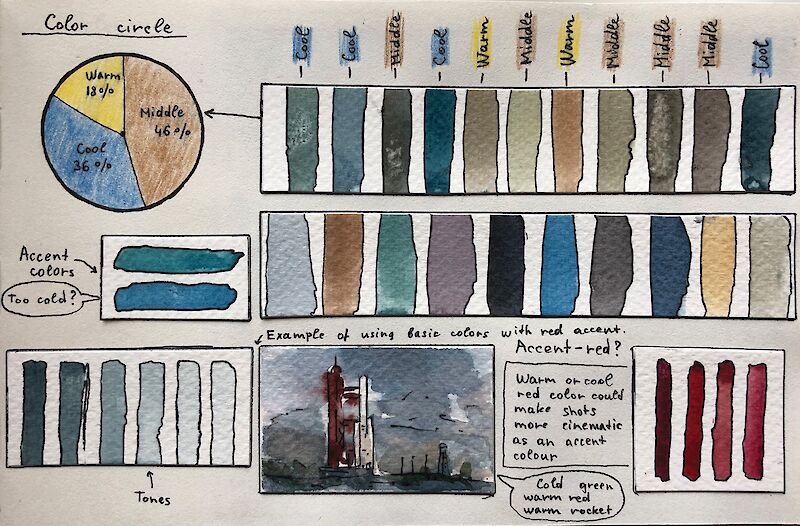 Color circle
Warm
18%
Middle
46%
Cool
36%
Cool
Cool
Middle
Cool
Warm
Middle
Warm
Middle
Middle
Middle
Cool
Accent
colors
Too cold?
Example of using basic colors with red accent.
Accent-red?
Warm or cool
red color could
make shots
more cinematic
as an accent
colour
Cold green
warm red
warm rocket
Tones